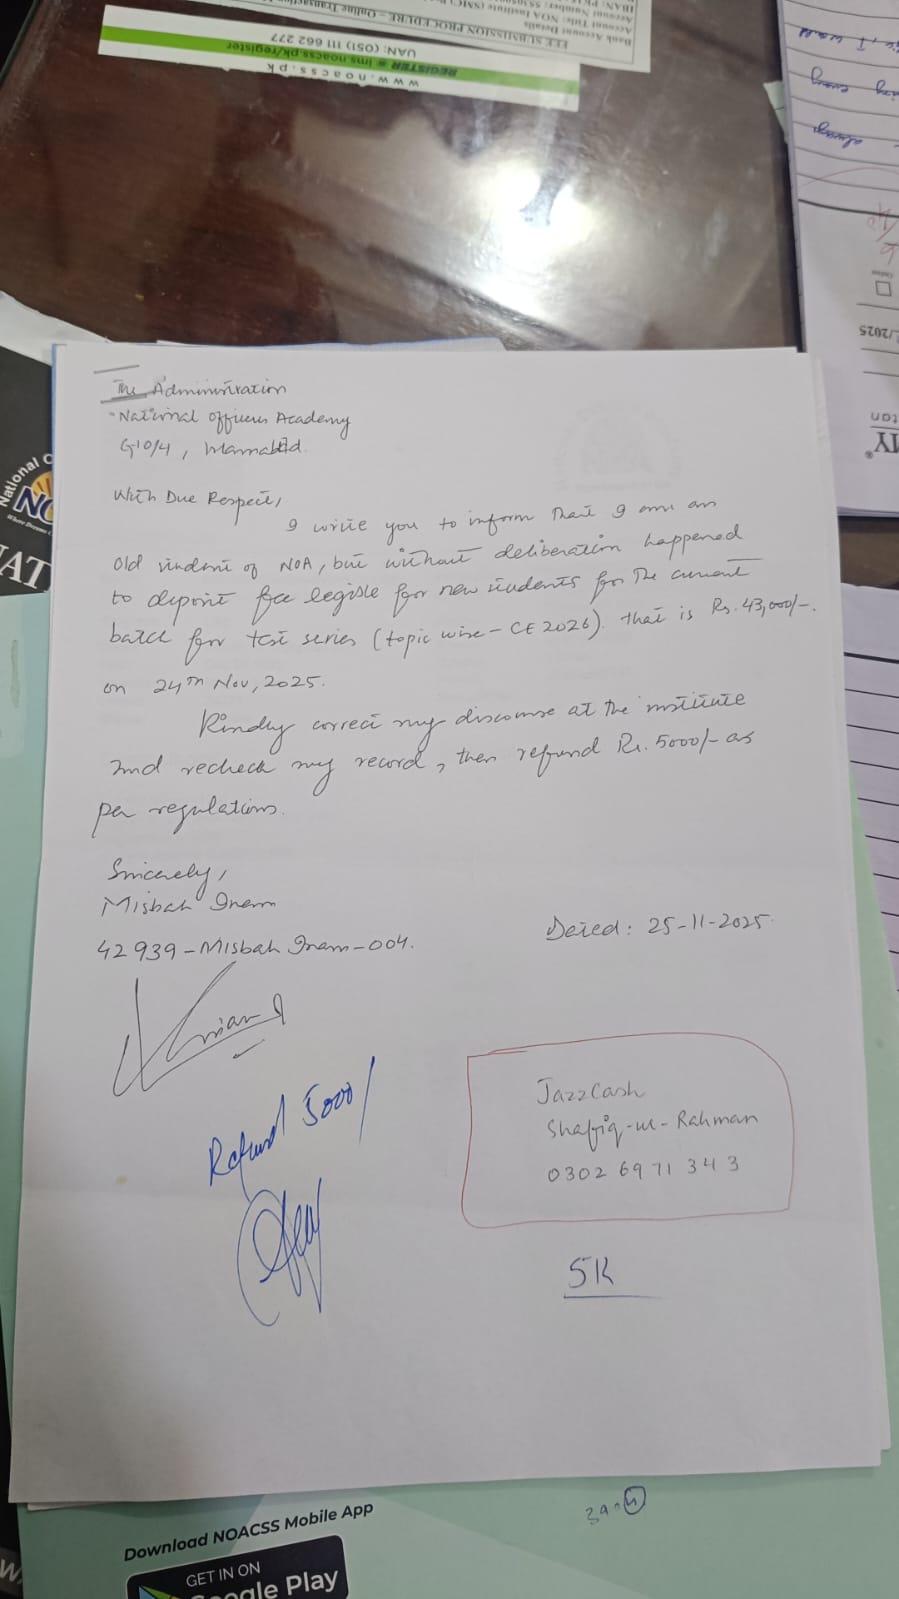 www.noacss.pk
REGISTER lms.noacss.pk/register
UAN: (051) 111 662 277
FEE SUBMISSION PROCEDURE – Online Transaction
Bank Account Details
Account Title: NOA Institute (SMC)
Account Number:
IBAN:
I
always
/2025
MY®
National O
NO
The Administration
National Officers Academy
G10/4, Islamabad.
With Due Respect,
I write you to inform that I am an
Old student of NOA, but without deliberation happened
to deposit fee legible for new students for the current
batch for test series (topic wise – CE 2026). that is Rs. 43,000/-.
on 24th Nov, 2025.
Kindly correct my discourse at the institute
and recheck my record, then refund Rs. 5000/- as
per regulations.
Sincerely,
Misbah Inam
42939-Misbah Inam-004.
Dated: 25-11-2025.
Refund 5000/
JazzCash
Shafiq-ur-Rahman
0302 6971343
5K
Download NOACSS Mobile App
GET IN ON
Google Play